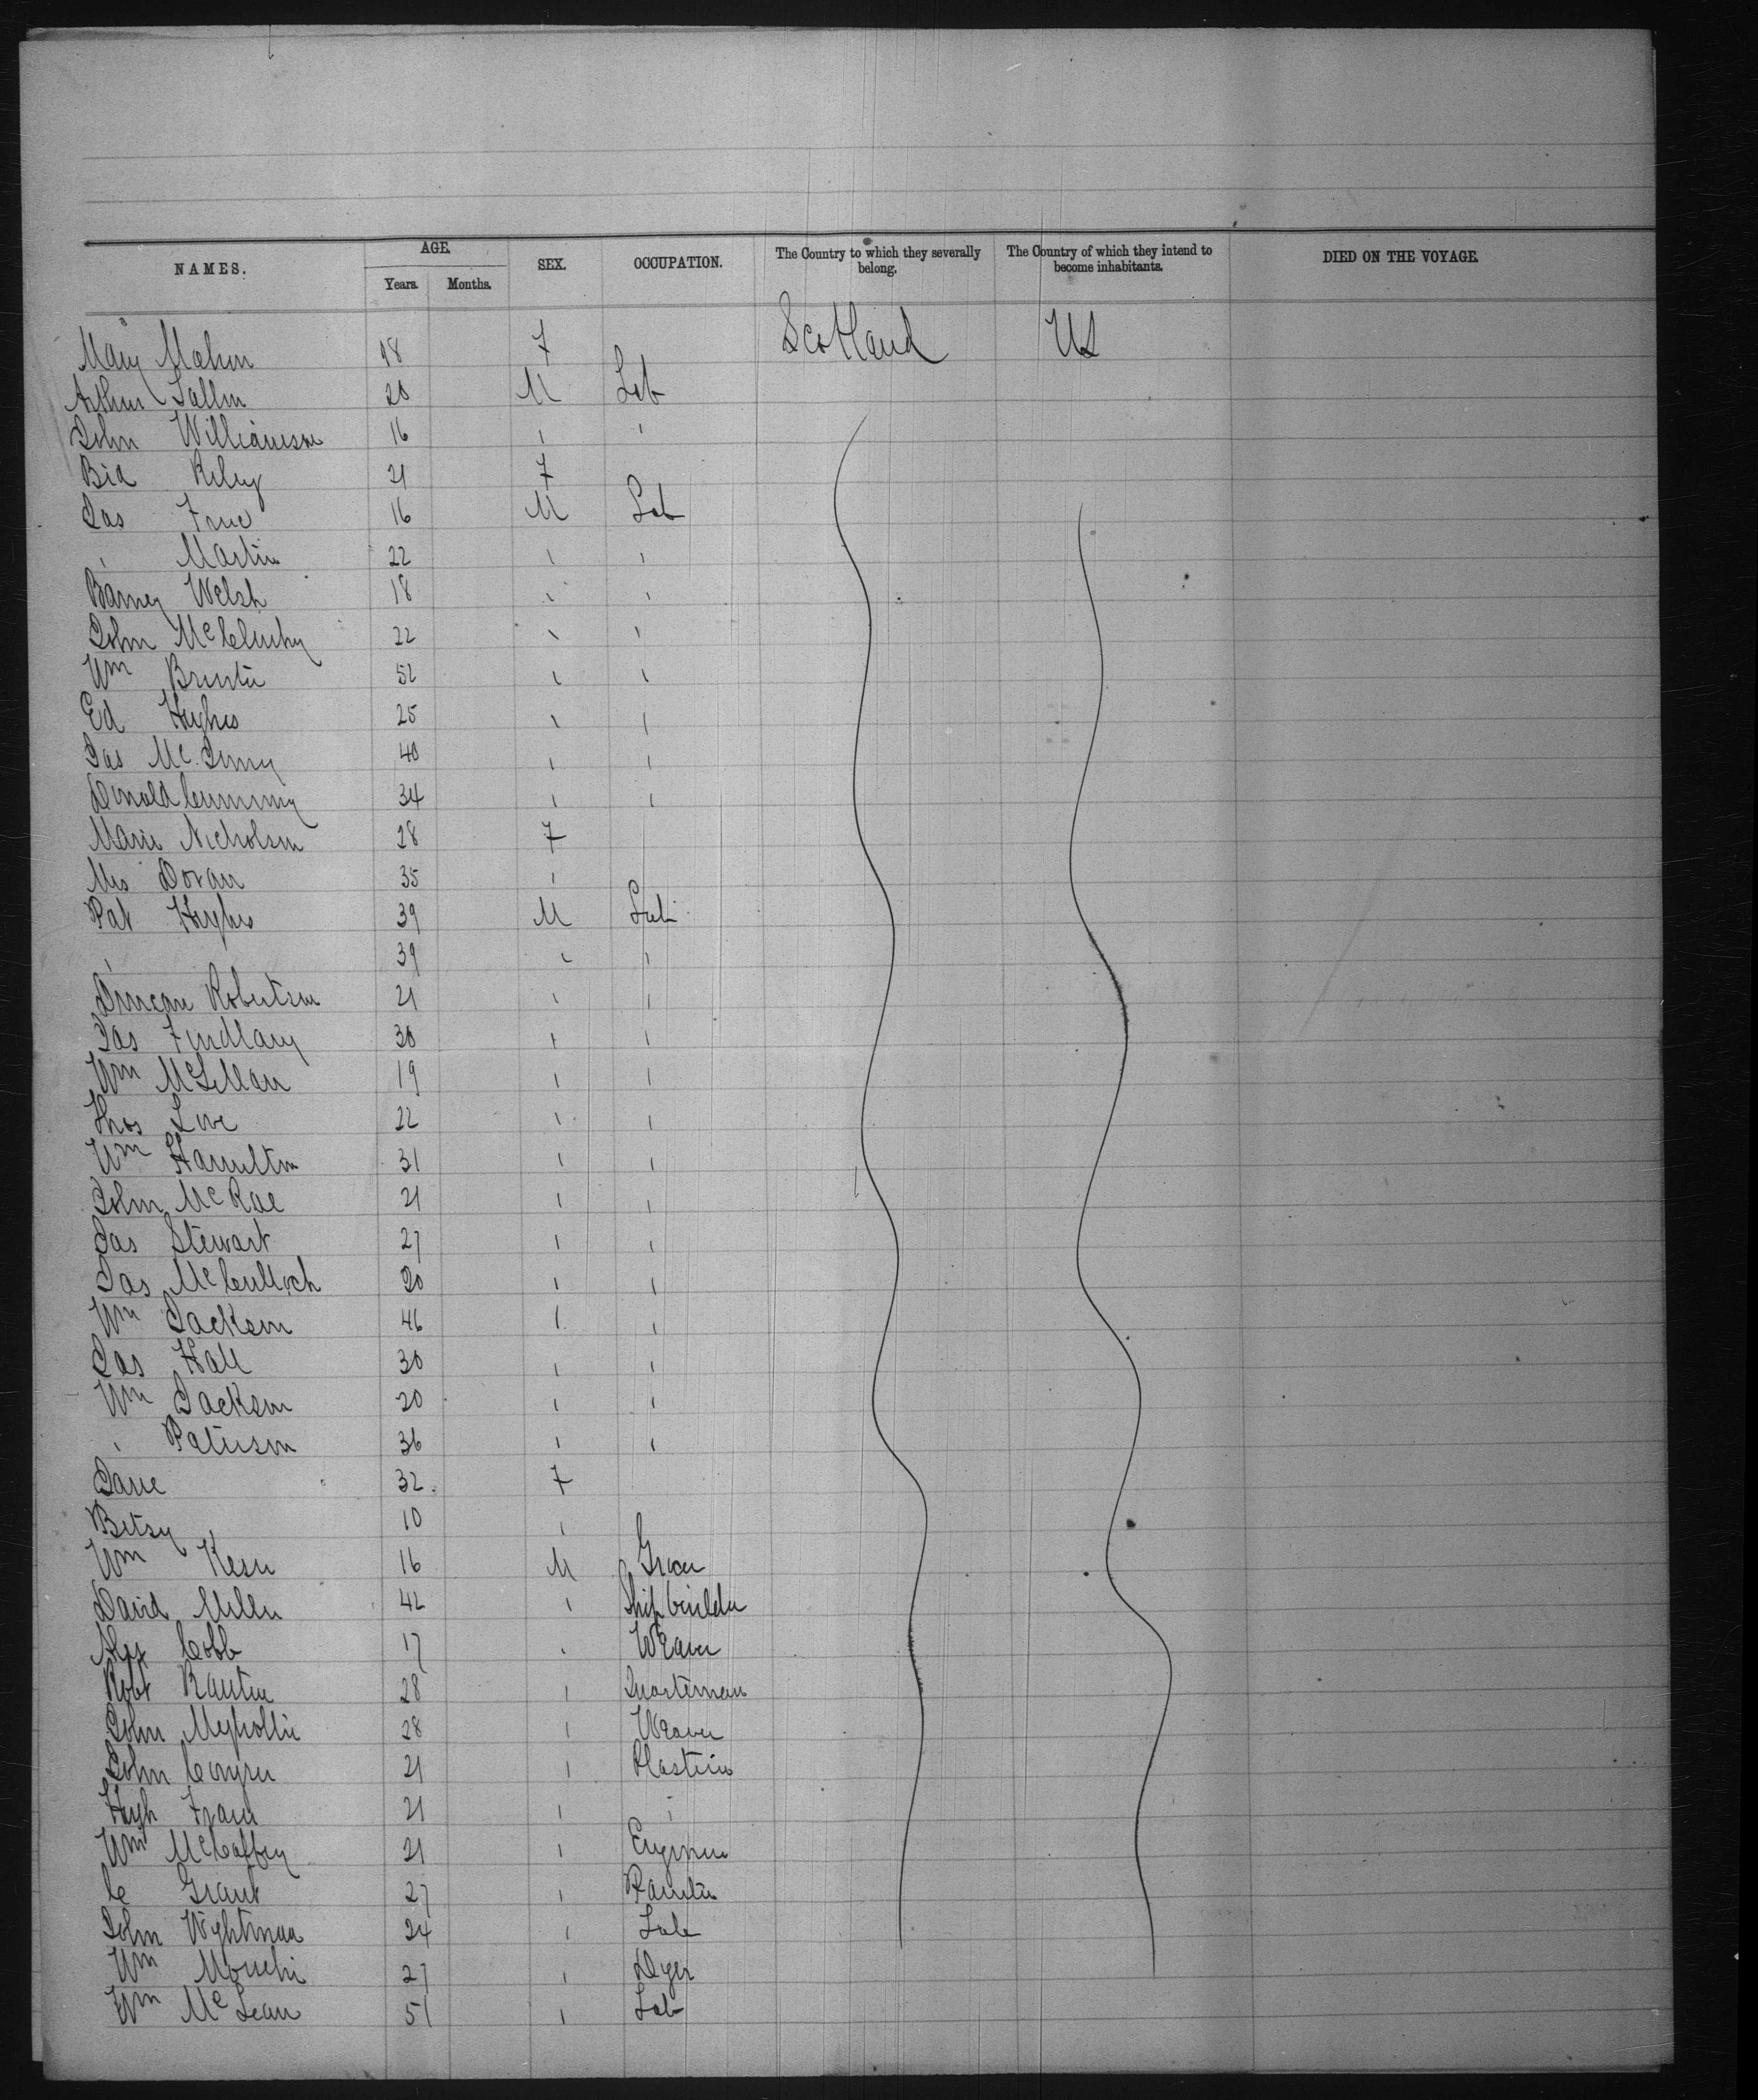 NAMES. AGE. Years. Months. SEX. OCCUPATION. The Country to which they severally belong. The Country of which they intend to become inhabitants. DIED ON THE VOYAGE.
Mary Mahon 18 F Scotland US
Arthur 20 M Lab
John Williamson 16 " "
Bid Riley 21 F
Jas 16 M Lab
" Martin 22 " "
Barney Welsh 18 " "
John McCluskey 22 " "
Wm 52 " "
Ed Hughes 25 " "
Jas 40 " "
Donald Cumming 34 " "
Marie Nicholson 28 F
Mrs Doran 35 "
Pat Hughes 39 M Lab
" 39 " "
Duncan Robertson 21 " "
Jas Findlary 30 " "
Wm McLellan 19 " "
Thos Love 22 " "
Wm Hamilton 31 " "
John McRae 21 " "
Jas Stewart 27 " "
Jas McCulloch 20 " "
Wm Jackson 46 " "
Jas Hall 30 " "
Wm Jackson 20 " "
" Paterson 36 " "
Jane 32 F
Betsy 10 "
Wm 16 M Grocer
David Miller 42 " Ship builder
Alex Cobb 17 " Weaver
Robt 28 "
John 28 " Weaver
John 21 " Plasterer
Hugh 21 " "
Wm McCaffrey 21 " Engineer
C Grant 27 "
John Wightman 24 " Lab
Wm 27 " Dyer
Wm McLean 51 " Lab